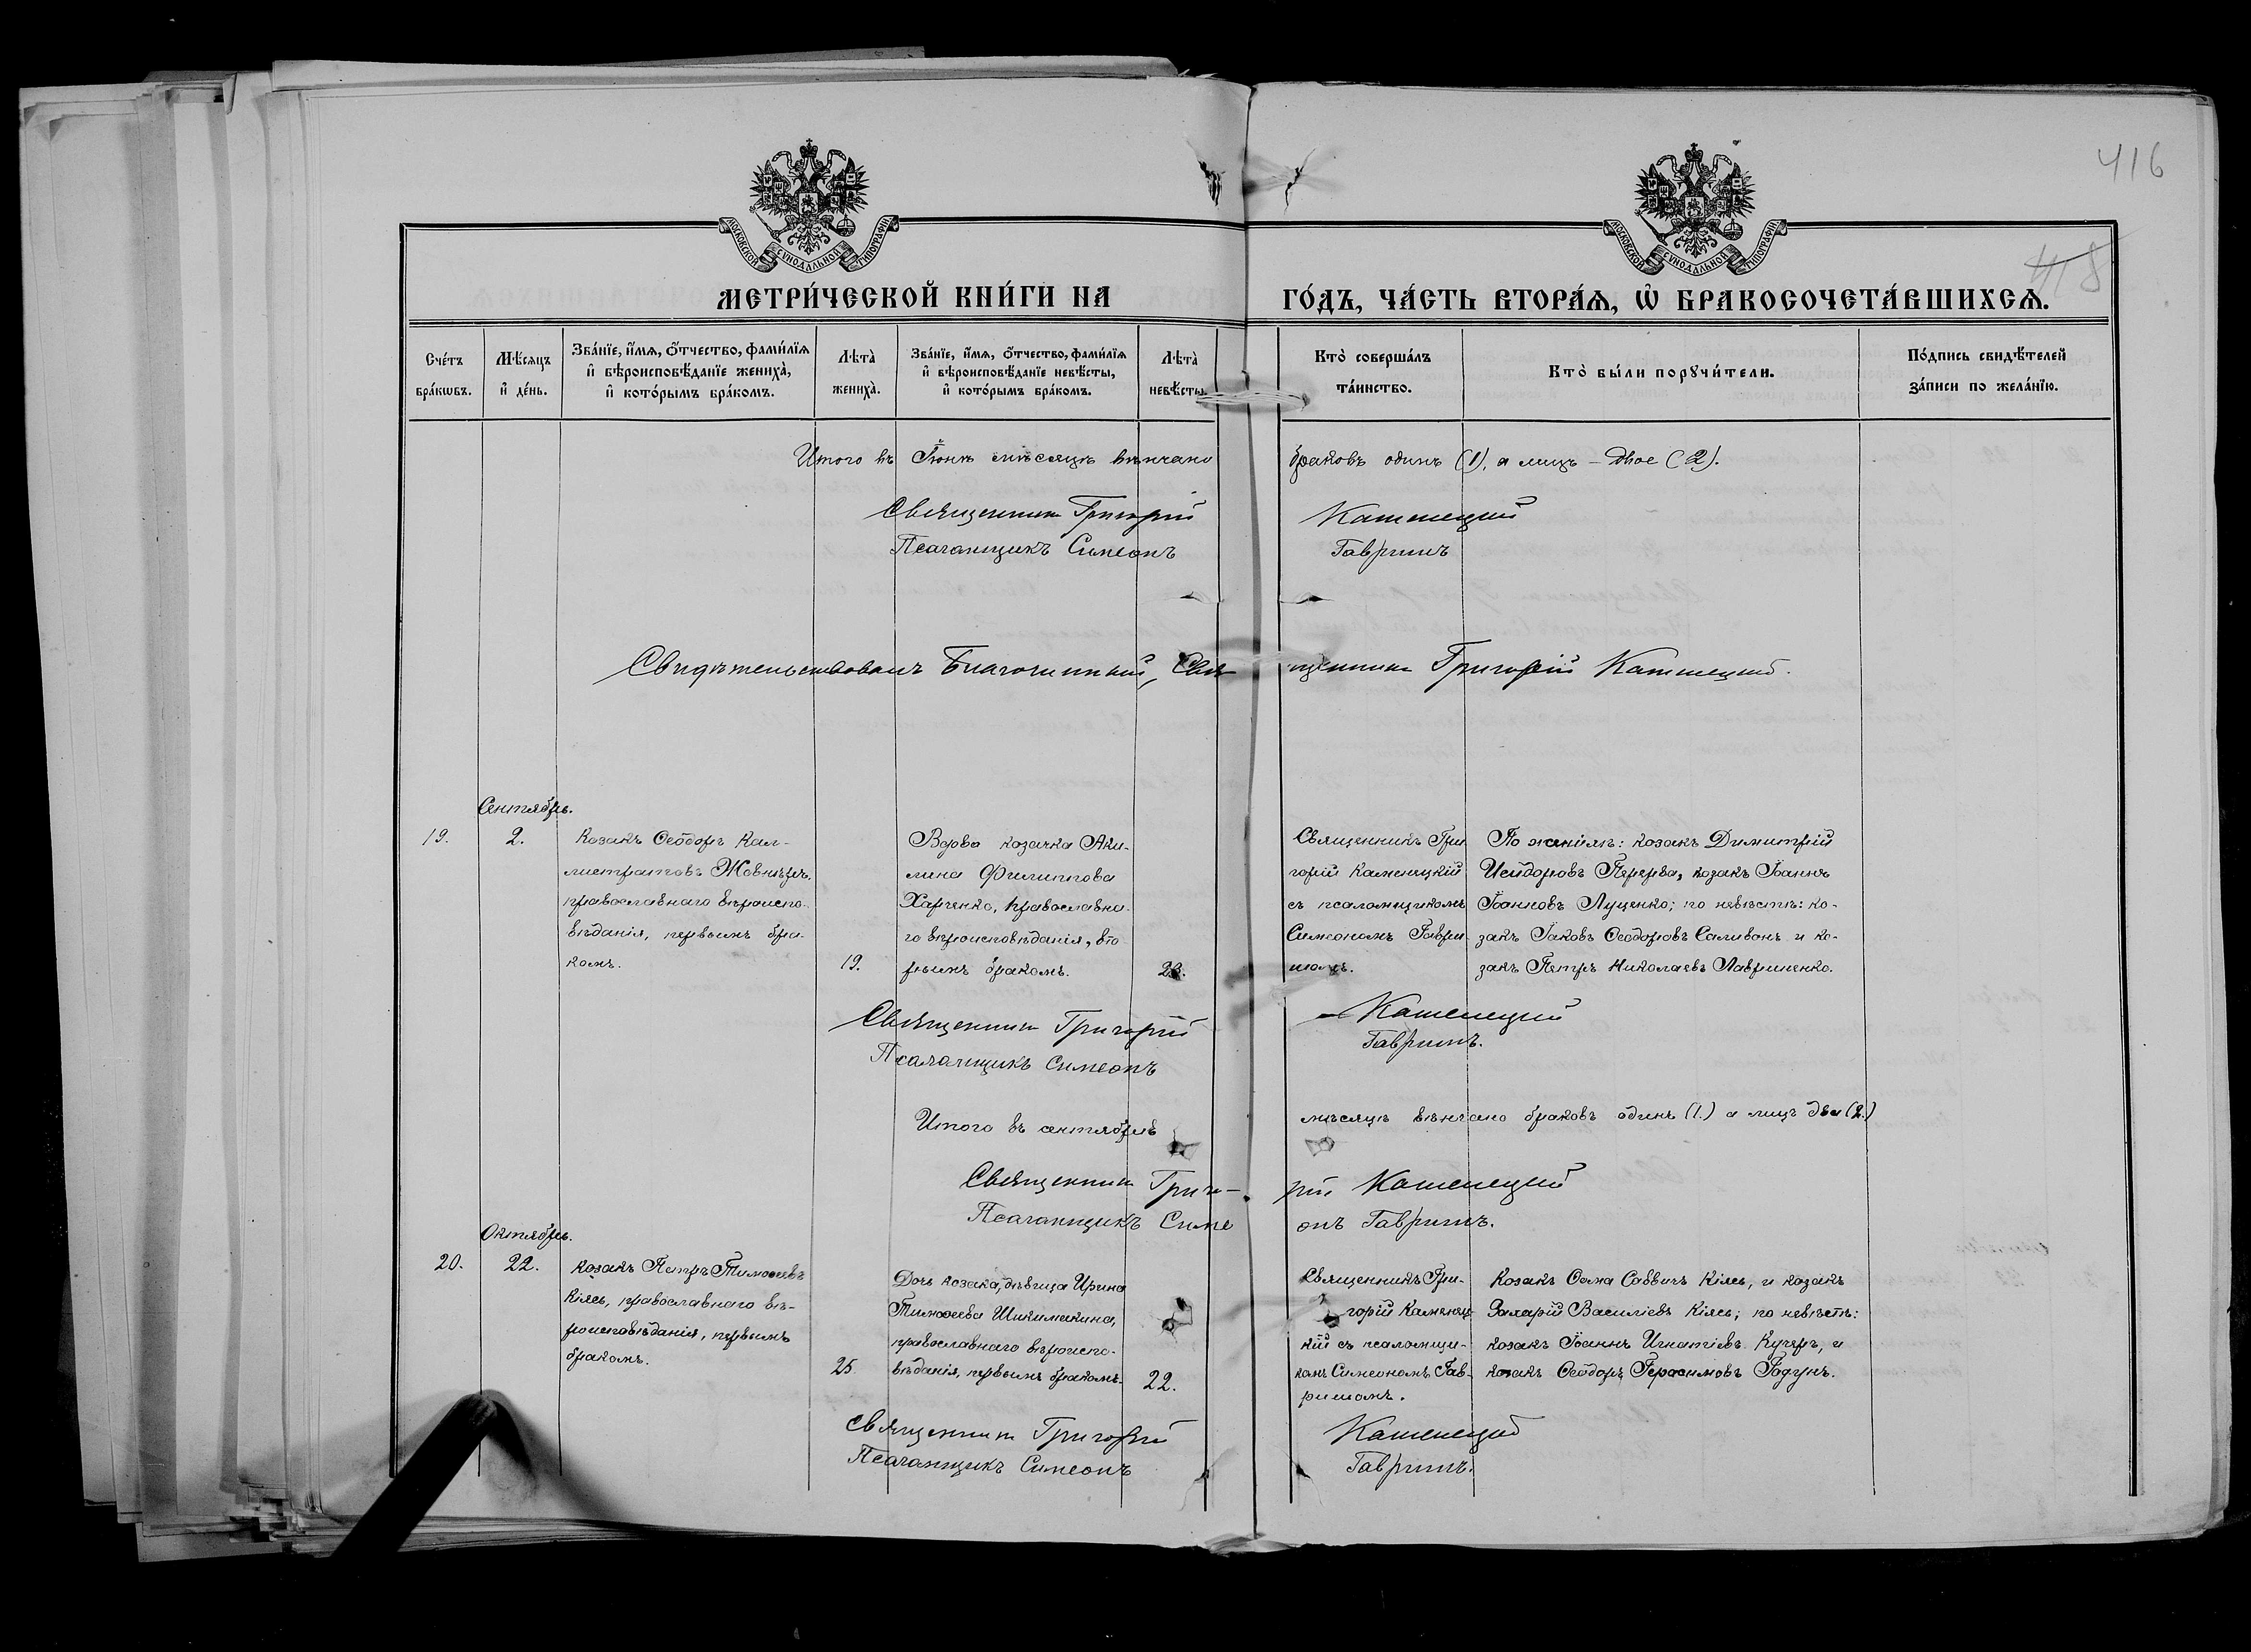 416
418
МОСКОВСКОЙ СѴНОДАЛЬНОЙ ТИПОГРАФІИ
МОСКОВСКОЙ СѴНОДАЛЬНОЙ ТИПОГРАФІИ
МЕТРИ́ЧЕСКОЙ КНИ́ГИ НА ГО́ДЪ, ЧА́СТЬ ВТОРА́Ѧ, Ѡ҆ БРАКОСОЧЕТА́ВШИХСѦ.
Сче́тъ
бра́кѡвъ.
Мѣ́сяцъ
и҆ де́нь.
Зва́нїе, и҆́мѧ, ѻ҆́тчество, фами́лїѧ
и҆ вѣроисповѣ́данїе жениха̀,
и҆ кото́рымъ бра́комъ.
Лѣта̀
жениха̀.
Зва́нїе, и҆́мѧ, ѻ҆́тчество, фами́лїѧ
и҆ вѣроисповѣ́данїе невѣ́сты,
и҆ кото́рымъ бра́комъ.
Лѣта̀
невѣ́сты.
Кто̀ соверша́лъ
та́инство.
Кто̀ бы́ли порꙋчи́тели.
По́дпись свидѣ́телей
за́писи по жела́нїю.
Итого въ Іюнѣ мѣсяцѣ вѣнчано браковъ одинъ (1), а лицъ – двое (2).
Священникъ Григорій Каменецкій
Псаломщикъ Симеонъ Гавришъ
Свидѣтельствовалъ Благочинный, Священникъ Григорій Каменецкій.
Сентябрь.
19.
2.
Козакъ Ѳеодоръ Кал-
листратовъ Жовнѣръ,
православнаго вѣроиспо-
вѣданія, первымъ бра-
комъ.
19.
Вдова козачка Аки-
лина Филиппова
Харченко, православна-
го вѣроисповѣданія, вто
рымъ бракомъ.
23.
Священникъ Гри
горій Каменецкій
съ псаломщикомъ
Симеономъ Гаври
шомъ.
По женихѣ: козакъ Димитрій
Исидоровъ Перерва, козакъ Іоаннъ
Іоанновъ Луценко; по невѣстѣ: ко-
закъ Іаковъ Ѳеодоровъ Саливонъ и ко-
закъ Петръ Николаевъ Лавриненко.
Священникъ Григорій Каменецкій
Псаломщикъ Симеонъ Гавришъ.
Итого въ сентябрѣ мѣсяцѣ вѣнчано браковъ одинъ (1.) а лицъ два (2.)
Священникъ Григо-рій Каменецкій
Псаломщикъ Симеонъ Гавришъ.
Октябрь.
20.
22.
Козакъ Петръ Тимоѳеевъ
Кіясь, православнаго вѣ-
роисповѣданія, первымъ
бракомъ.
25.
Дочь козака, дѣвица Ирина
Тимоѳеева Шикимакина,
православнаго вѣроиспо-
вѣданія, первымъ бракомъ.
22.
Священникъ Гри-
горій Каменец-
кій съ псаломщи-
комъ Симеономъ Гав-
ришомъ.
Козакъ Ѳома Саввичъ Кіясь, и козакъ
Захарій Василіевъ Кіясь; по невѣстѣ:
козакъ Іоаннъ Игнатіевъ Кучеръ, и
козакъ Ѳеодоръ Герасимовъ Годунъ.
Священникъ Григорій Каменецкій
Псаломщикъ Симеонъ Гавришъ.